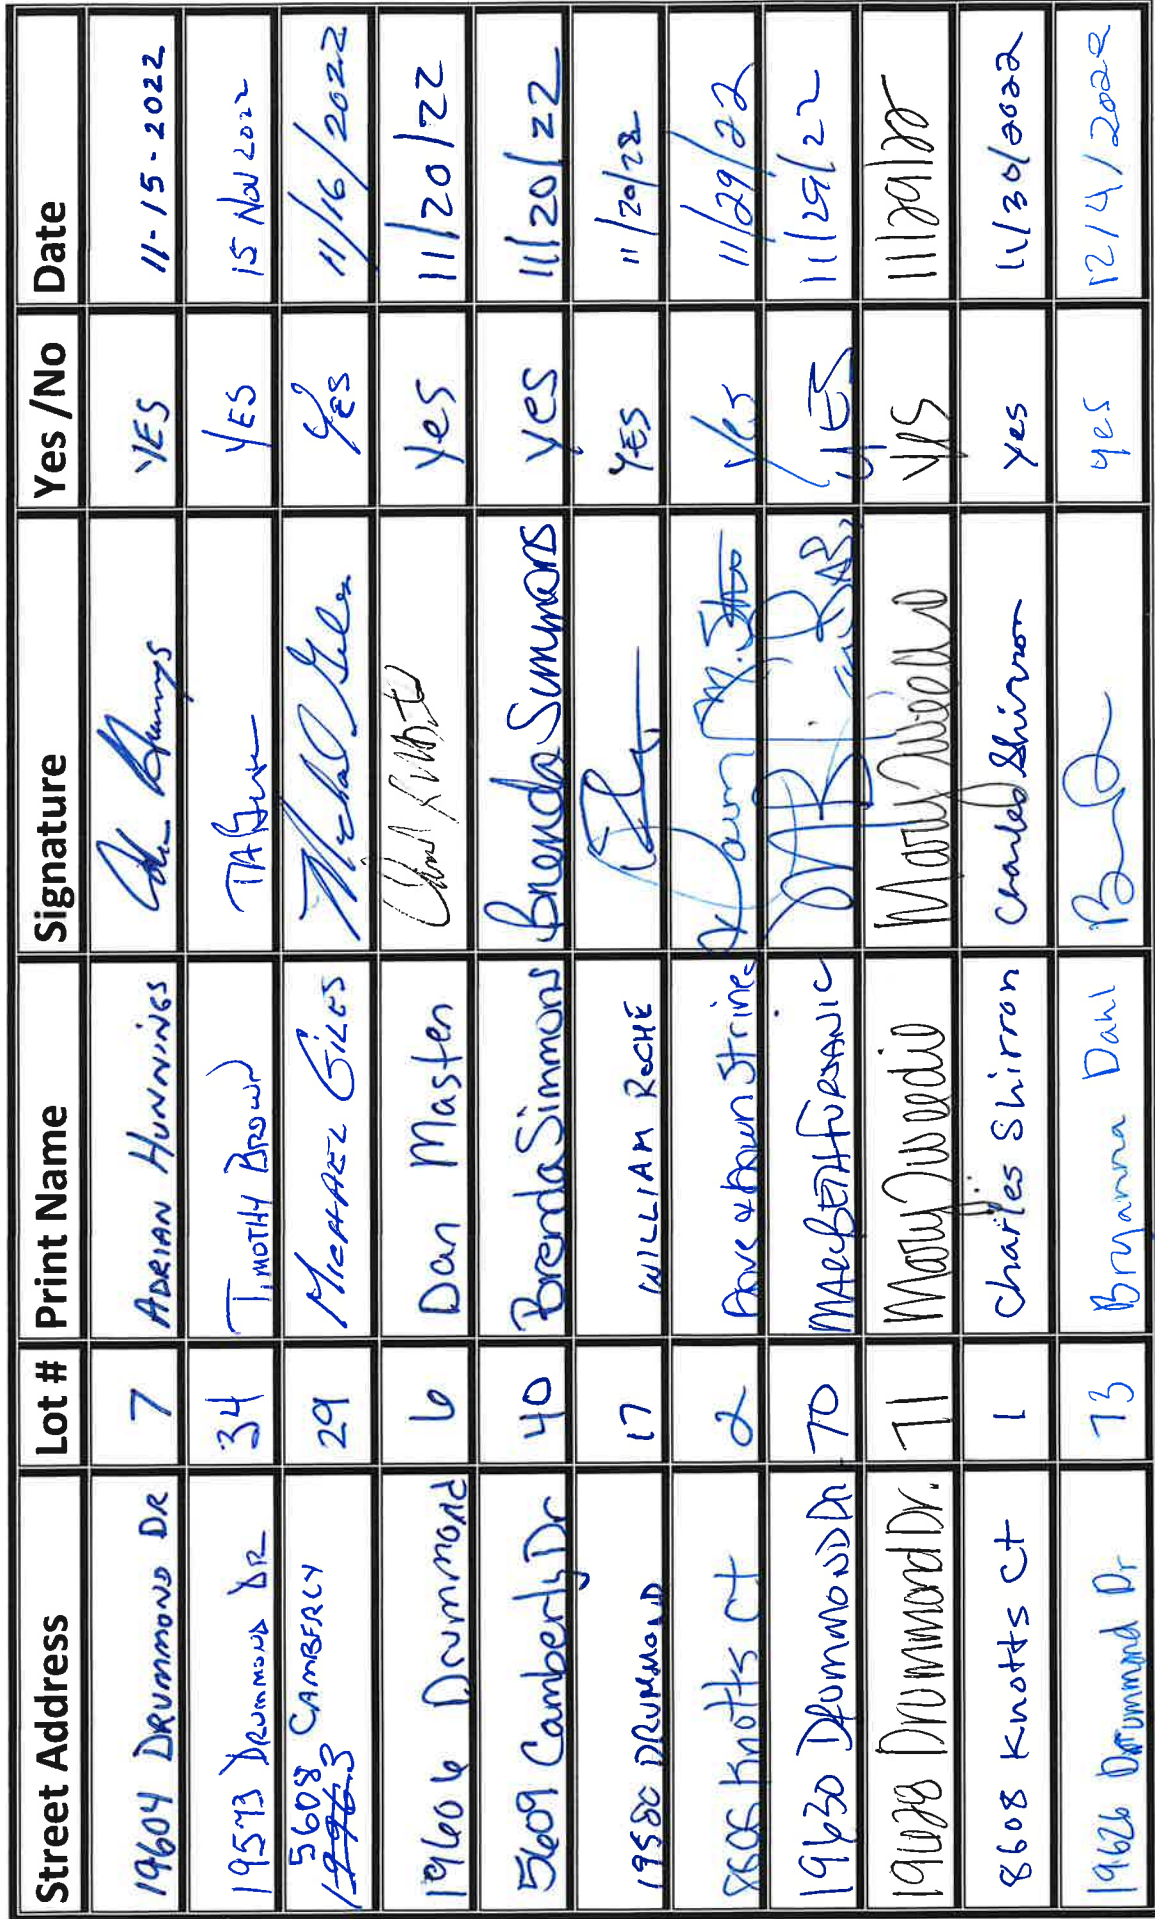 Street Address Lot # Print Name Signature Yes /No Date
19604 DRUMMOND DR 7 ADRIAN HUNNINGS YES 11-15-2022
19573 DRUMMOND DR 34 TIMOTHY BROWN TABrown YES 15 NOV 2022
5608 CAMBERLY 29 MICHAEL GILES Michael Giles YES 11/16/2022
19606 Drummond 6 Dan Masten yes 11/20/22
5609 Camberly Dr 40 Brenda Simmons Brenda Simmons yes 11/20/22
DRUMMOND 17 WILLIAM ROCHE YES 11/20/22
Knotts Ct 2 Dave & Dawn Strine Dawn M. yes 11/29/22
19630 DRUMMOND Dr 70 YES 11/29/22
19628 Drummond Dr. 71 Mary Tweedie Mary Tweedie yes 11/29/22
8608 Knotts Ct 1 Charles Shirron Charles Shirron yes 11/30/2022
19626 Drummond Dr 73 Bryanna Dahl yes 12/4/2022